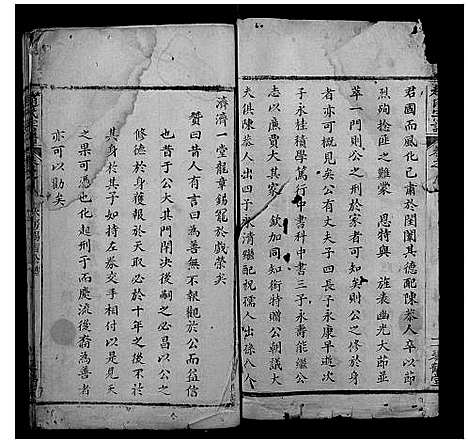 君國而風化已肅於閨闈其德配陳恭人卒以節
烈殉捻匪之難蒙　恩特與　旌表幽光大節並
萃一門則公之刑於家者可知矣則公之修於身
者亦可概見矣公有丈夫子四長子永康早逝次
子永桂積學篤行中書科中書三子永壽能繼公
志以廉賈大其家　欽加同知銜特贈公朝議大
夫俱陳恭人出四子永清繼配祝孺人出徐人人
濟濟一堂龍章錫寵於戲榮矣
贊曰昔人有言曰為善無不報觀於公而益信
也昔于公大其門閭決後嗣之必昌以公之
修德於身獲報於天取必於十年之後不於
其身於其子如持左券交手相付以是見天
之果可憑也化起刑于而慶流後裔為善者
亦可以勸矣